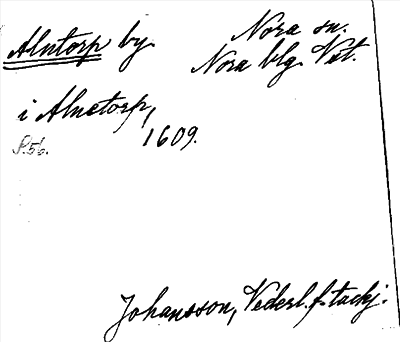 Alntorp by. Nora sn.
Nora blg. Vst.
i Alnetorp,
1609.
S. 56.
Johansson, Vederl. f. tackj.